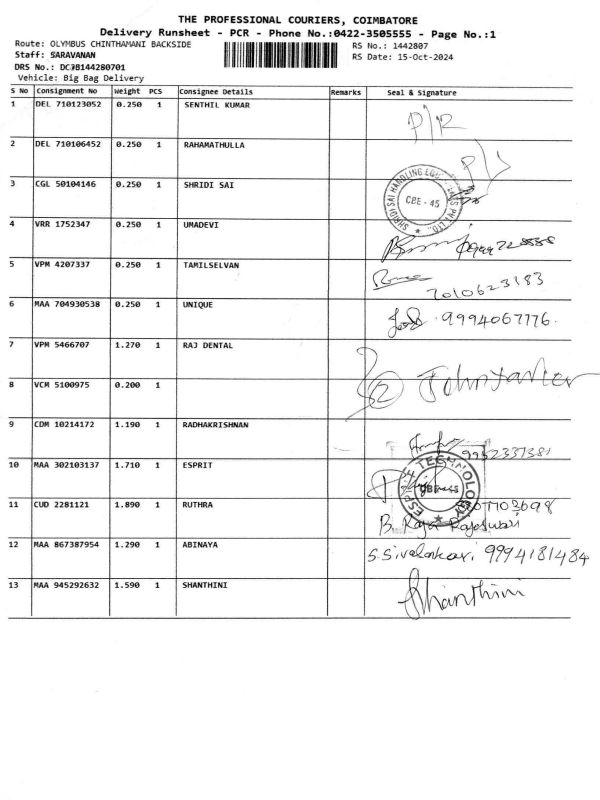 THE PROFESSIONAL COURIERS, COIMBATORE
Delivery Runsheet - PCR - Phone No.:0422-3505555 - Page No.:1
Route: OLYMBUS CHINTHAMANI BACKSIDE RS No.: 1442807
Staff: SARAVANAN RS Date: 15-Oct-2024
DRS No.: DCJB144280701
Vehicle: Big Bag Delivery
S No Consignment No Weight PCS Consignee Details Remarks Seal & Signature
1 DEL 710123052 0.250 1 SENTHIL KUMAR P/R
2 DEL 710106452 0.250 1 RAHAMATHULLA
3 CGL 50104146 0.250 1 SHRIDI SAI SHRIDI SAI HANDLING CBE - 45
4 VRR 1752347 0.250 1 UMADEVI
5 VPM 4207337 0.250 1 TAMILSELVAN 7010623183
6 MAA 704930538 0.250 1 UNIQUE 9994067776.
7 VPM 5466707 1.270 1 RAJ DENTAL
8 VCM 5100975 0.200 1
9 CDM 10214172 1.190 1 RADHAKRISHNAN
10 MAA 302103137 1.710 1 ESPRIT TECHNOLOGY
11 CUD 2281121 1.890 1 RUTHRA B. Raja Rajeswari
12 MAA 867387954 1.290 1 ABINAYA 9994181484
13 MAA 945292632 1.590 1 SHANTHINI Shanthini